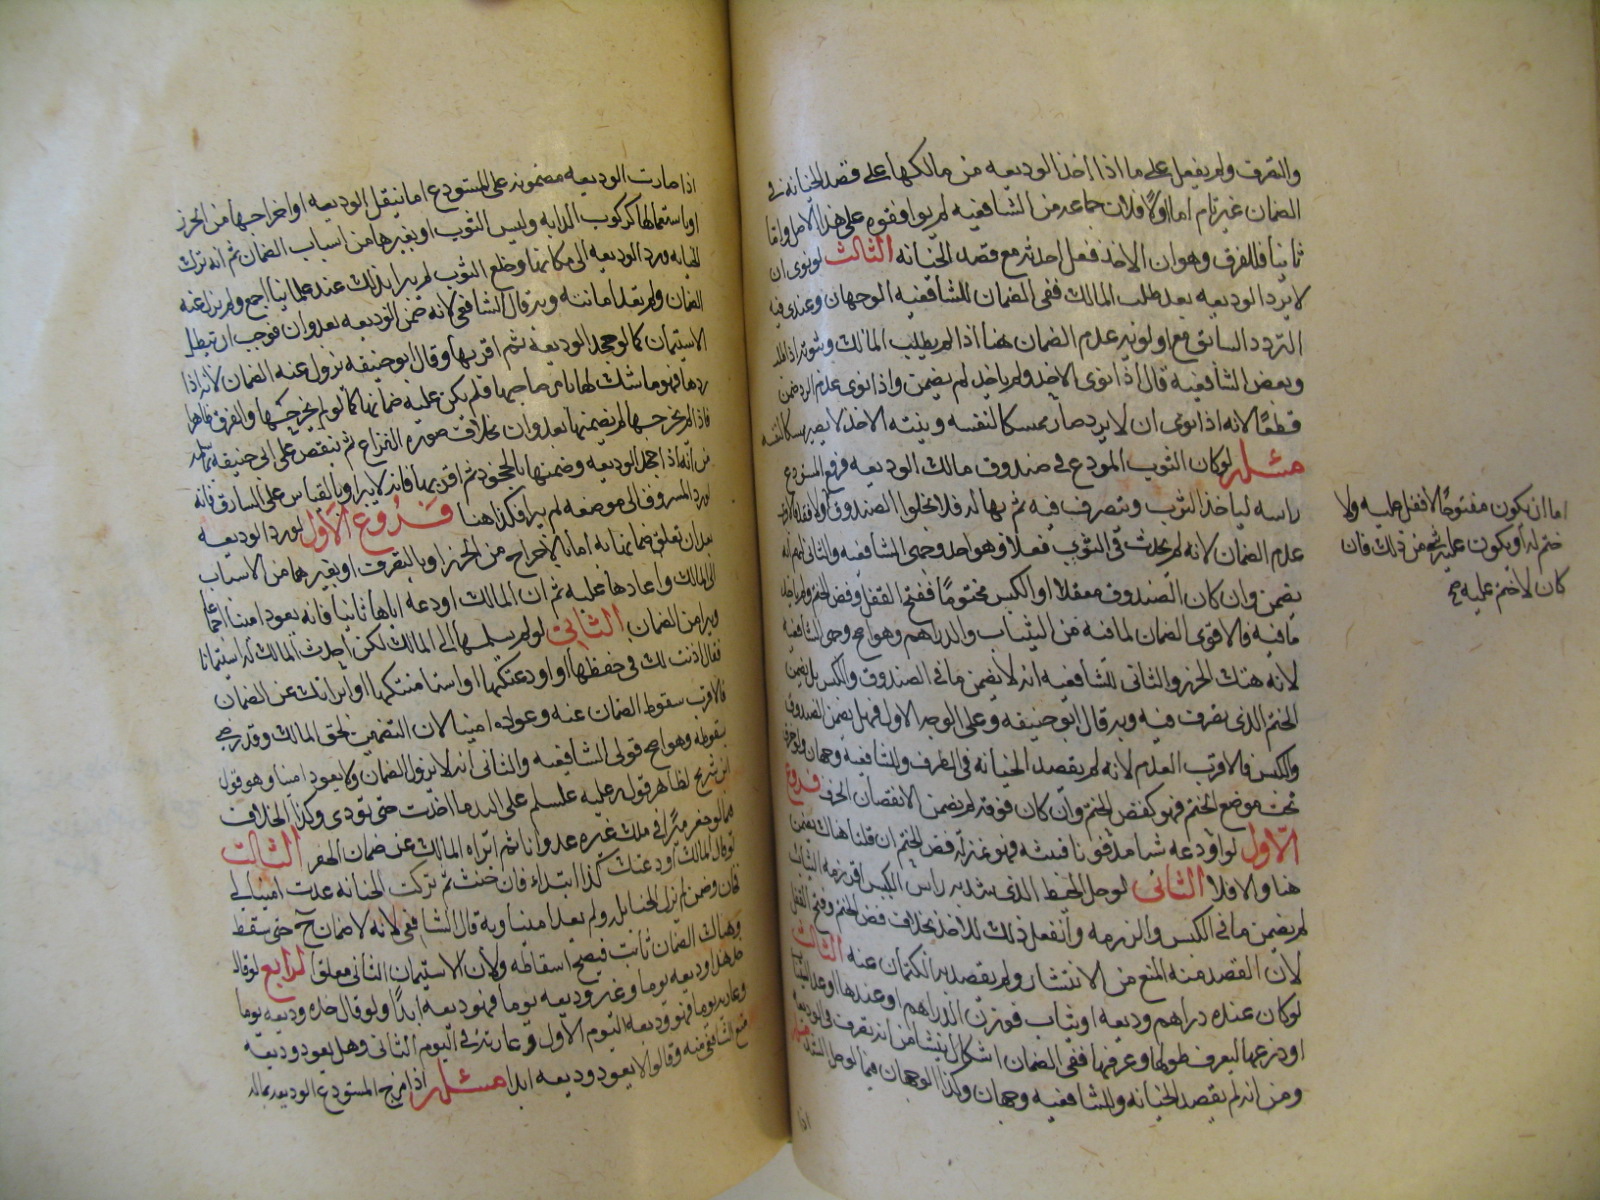 والتصرف ولم يفعل على ما اذا اخذ الوديعه من مالكها على قصد الخيانة في
الضمان غير تام اما اولا فلان جماعه من الشافعيه لم يوافقوه على هذا الاصل واما
ثانيا فللفرق وهو ان الاخذ فعل احدثه مع قصد الخيانه الثالث لو نوى ان
لا يرد الوديعه بعد طلب المالك ففي الضمان للشافعيه الوجهان وعندي فيه
التردد السابق مع اولويه عدم الضمان هنا اذا لم يطلب المالك وثبوته اذا طلب
وبعض الشافعية قال اذا نوى الاخذ ولم ياخذ لم يضمن واذا نوى عدم الرد ضمن
قطعا لانه اذا نوى ان لا يرد صار ممسكا لنفسه وبنيته الاخذ لا يصير ممسكا لنفسه
مسئله لو كان الثوب المودع في صندوق مالك الوديعه فرفع المستودع
راسه لياخذ الثوب ويتصرف فيه ثم بدا له فلا يخلوا الصندوق
عدم الضمان لانه لم يحدث في الثوب فعلا وهو احد وجهي الشافعيه والثاني انه
يضمن وان كان الصندوق مقفلا او الكيس مختوما ففتح القفل وفض الختم ولم ياخذ
ما فيه فالاقوى الضمان لما فيه من الثياب والدراهم وهو اصح وجهي الشافعيه
لانه هتك الحرز والثاني للشافعيه انه لا يضمن ما في الصندوق والكيس بل يضمن
الختم الذي تصرف فيه وبه قال ابو حنيفه وعلى الوجه الاول فهل يضمن الصندوق
والكيس فالاقرب العدم لانه لم يقصد الخيانه في الظرف وللشافعية وجهان ولو خرق
تحت موضع الختم فهو كفض الختم وان كان فوقه لم يضمن الا نقصان الخرق فروع
الاول لو اودعه شيئا مدفونا فنبشه فهو بمنزلة فض الختم ان قلنا هناك يضمن
هنا والا فلا الثاني لو حل الخيط الذي شد به راس الكيس او رزمه الثياب
لم يضمن ما في الكيس والرزمه وان فعل ذلك للاخذ بخلاف فض الختم وفتح القفل
لان القصد منه المنع من الانتشار ولم يقصد به الكتمان عنه الثالث
لو كان عنده دراهم وديعه او ثياب فوزن الدراهم او عدها او عد الثياب
او ذرعها ليعرف طولها وعرضها ففي الضمان اشكال ينشا من انه تصرف في الوديعة
ومن انه لم يقصد الخيانه وللشافعيه وجهان وكذا الوجهان فيما لو حل الشد مسئله
اذا
اما ان يكون مفتوحا لا قفل عليه ولا
ختم له او يكون عليه شيء من ذلك فان
كان لا ختم عليه صح
اذا صارت الوديعه مضمونه على المستودع اما بنقل الوديعه او اخراجها من الحرز
او باستعمالها كركوب الدابه ولبس الثوب او بغيرها من اسباب الضمان ثم انه ترك
الخيانه ورد الوديعه الى مكانها وخلع الثوب لم يبرا بذلك عند علمائنا اجمع ولم يزل عنه
الضمان ولم تعد امانته وبه قال الشافعي لانه ضمن الوديعه بعدوان فوجب ان يبطل
الاستيمان كما لو جحد الوديعة ثم اقر بها وقال ابو حنيفه يزول عنه الضمان لانه اذا
ردها فهو ماسك لها بامر صاحبها فلم يكن عليه ضمانها كما لو لم يخرجها والفرق ظاهر
فاذا لم يخرجها لم يضمنها بعدوان بخلاف صورة النزاع ثم ينقض على ابي حنيفه بما سلمه
من انه اذا جحد الوديعه وضمنها بالجحود ثم اقر بها فانه لا يبرا وبالقياس على السارق فانه
لو رد المسروق الى موضعه لم يبر فكذا هنا فروع الاول لو رد الوديعه
بعد ان تعلق ضمانها به اما بالاخراج من الحرز او بالتصرف او بغيرهما من الاسباب
الى المالك واعادها عليه ثم ان المالك اودعه اياها ثانيا فانه يعود امينا اجماعا
ويبرا من الضمان الثاني لو لم يسلمها الى المالك لكن احدث المالك له استيمانا
فقال اذنت لك في حفظها او اودعتكها او استامنتكها او ابراتك عن الضمان
فالاقرب سقوط الضمان عنه وعوده امينا لان التضمين لحق المالك وقد رضي
بسقوطه وهو اصح قولي الشافعيه والثاني انه لا يزول الضمان ولا يعود امينا وهو قول
ابن شريح لظاهر قوله عليه علسلم على اليد ما اخذت حتى تؤدي وكذا الخلاف
فيما لو حفر بيرا في ملك غيره عدوانا ثم ابراه المالك عن ضمان الحفر الثالث
لو قال المالك اودعتك كذا ابتداء فان خنت ثم تركت الخيانه عدت امينا لي
فخان وضمن ثم ترك الخيانه لم يزل ولم يعد امينا وبه قال الشافعي لانه لا ضمان ح حتى يسقط
وهناك الضمان ثابت فيصح اسقاطه ولان الاستيمان الثاني معلق الرابع لو قال
خذ هذا وديعه يوما وغير وديعه يوما فهو وديعه ابدا ولو قال خذه وديعه يوما
وعاريه يوما فهو وديعه اليوم الاول وعارية في اليوم الثاني وهل يعود وديعه
منع الشافعي منه وقالوا لا يعود وديعه ابدا مسئله اذا مزج المستودع الوديعه بماله